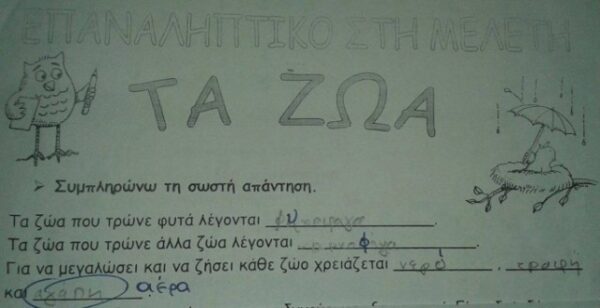 ΕΠΑΝΑΛΗΠΤΙΚΟ ΣΤΗ ΜΕΛΕΤΗ
ΤΑ ΖΩΑ
➢ Συμπληρώνω τη σωστή απάντηση.
Τα ζώα που τρώνε φυτά λέγονται
Τα ζώα που τρώνε άλλα ζώα λέγονται
Για να μεγαλώσει και να ζήσει κάθε ζώο χρειάζεται νερό, τροφή
και αγάπη αέρα